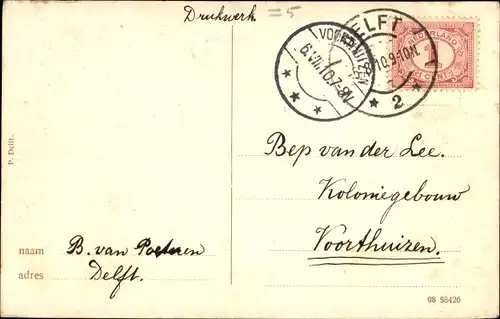 Drukwerk =5
DELFT
10.9-10N
★ 2 ★
VOORTHUIZEN
6.VII.10.7-8N
NEDERLAND
1
CENT
Bep van der Lee.
Koloniegebouw
Voorthuizen.
P. Delft.
naam B. van Poeteren
adres Delft.
08 58420